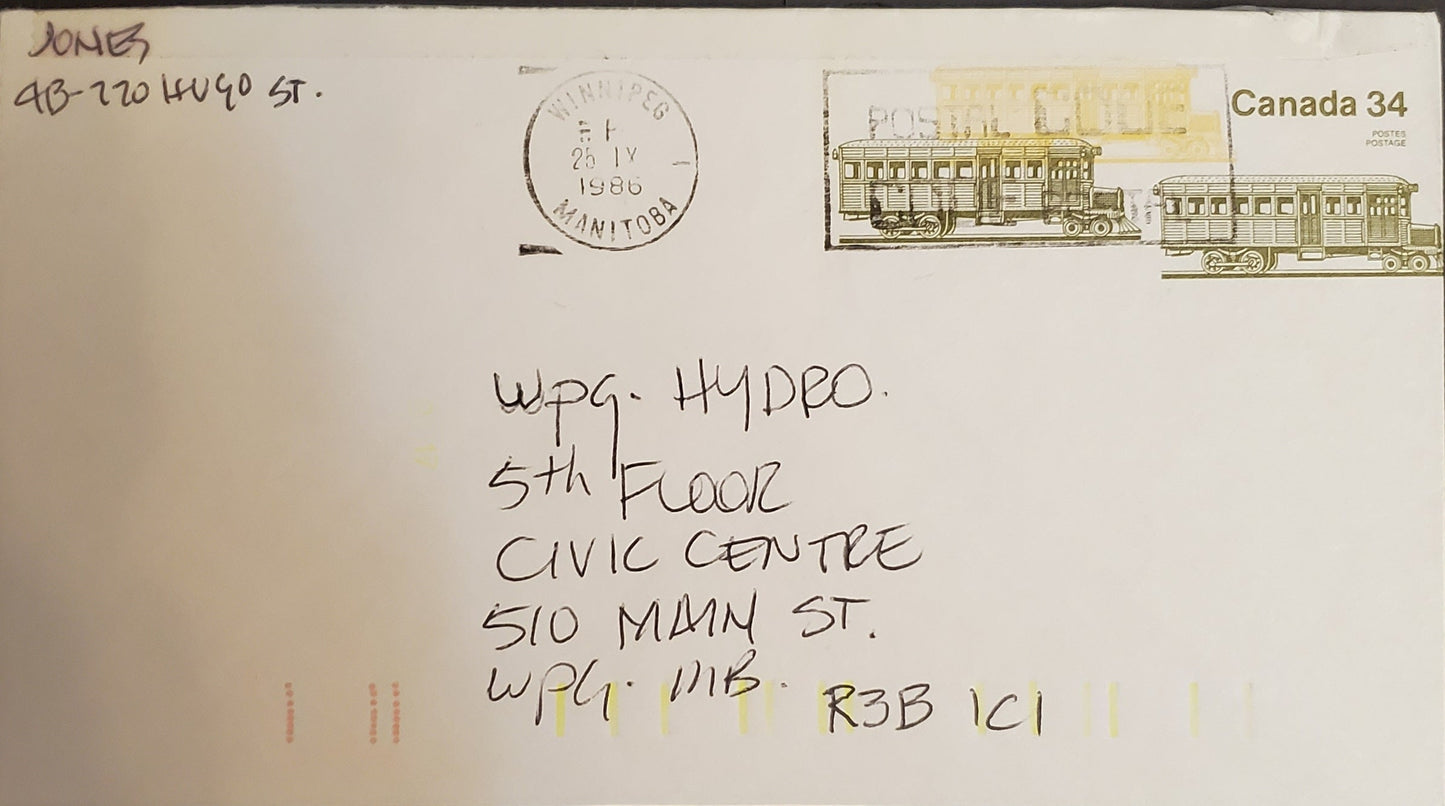 JONES
4B-220 HUGO ST.
WINNIPEG
25 IX
1986
MANITOBA
POSTAL CODE
Canada 34
POSTES
POSTAGE
Wpg. HYDRO.
5th FLOOR
CIVIC CENTRE
510 MAIN ST.
WPG. MB. R3B 1C1